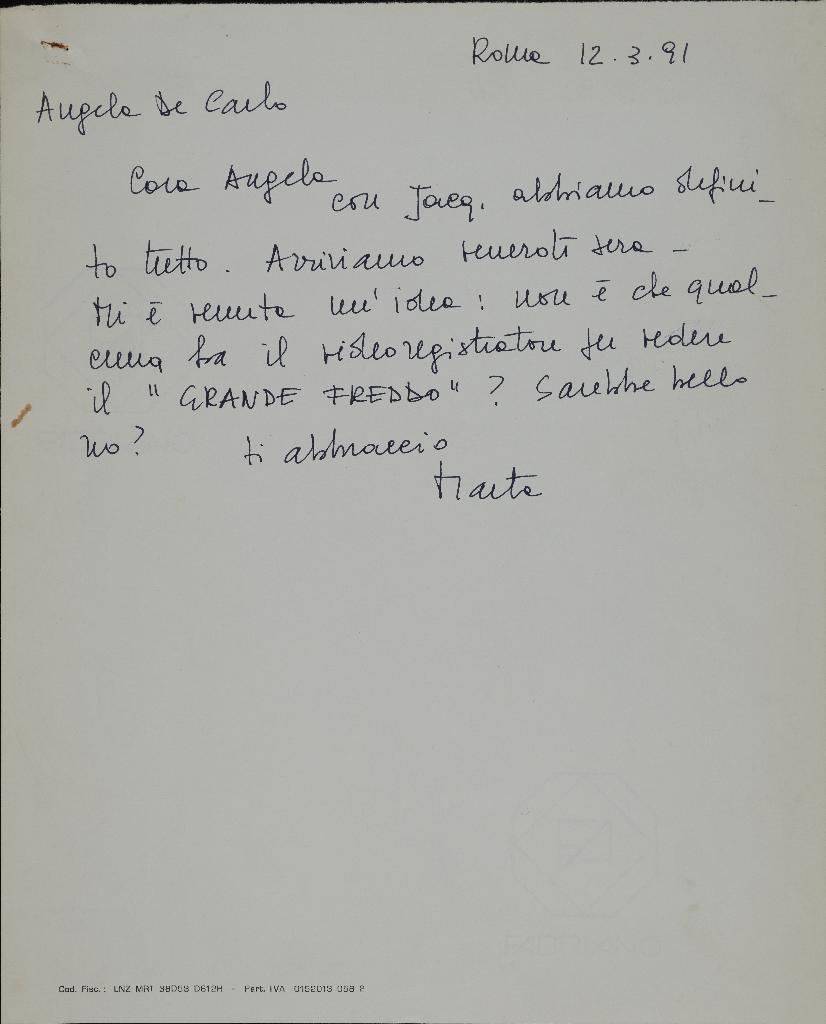 Roma 12.3.91
Angela De Carlo
Cara Angela
con Jacq. abbiamo defini_
to tutto. Arriviamo venerdì sera -
Mi è venuta un'idea: non è che qual_
cuna ha il videoregistratore per vedere
il "GRANDE FREDDO"? Sarebbe bello
no? ti abbraccio
Marta
FABRIANO
Cod. Fisc.: LNZ MRT 38D53 D612H - Part. IVA 0152013 058 2